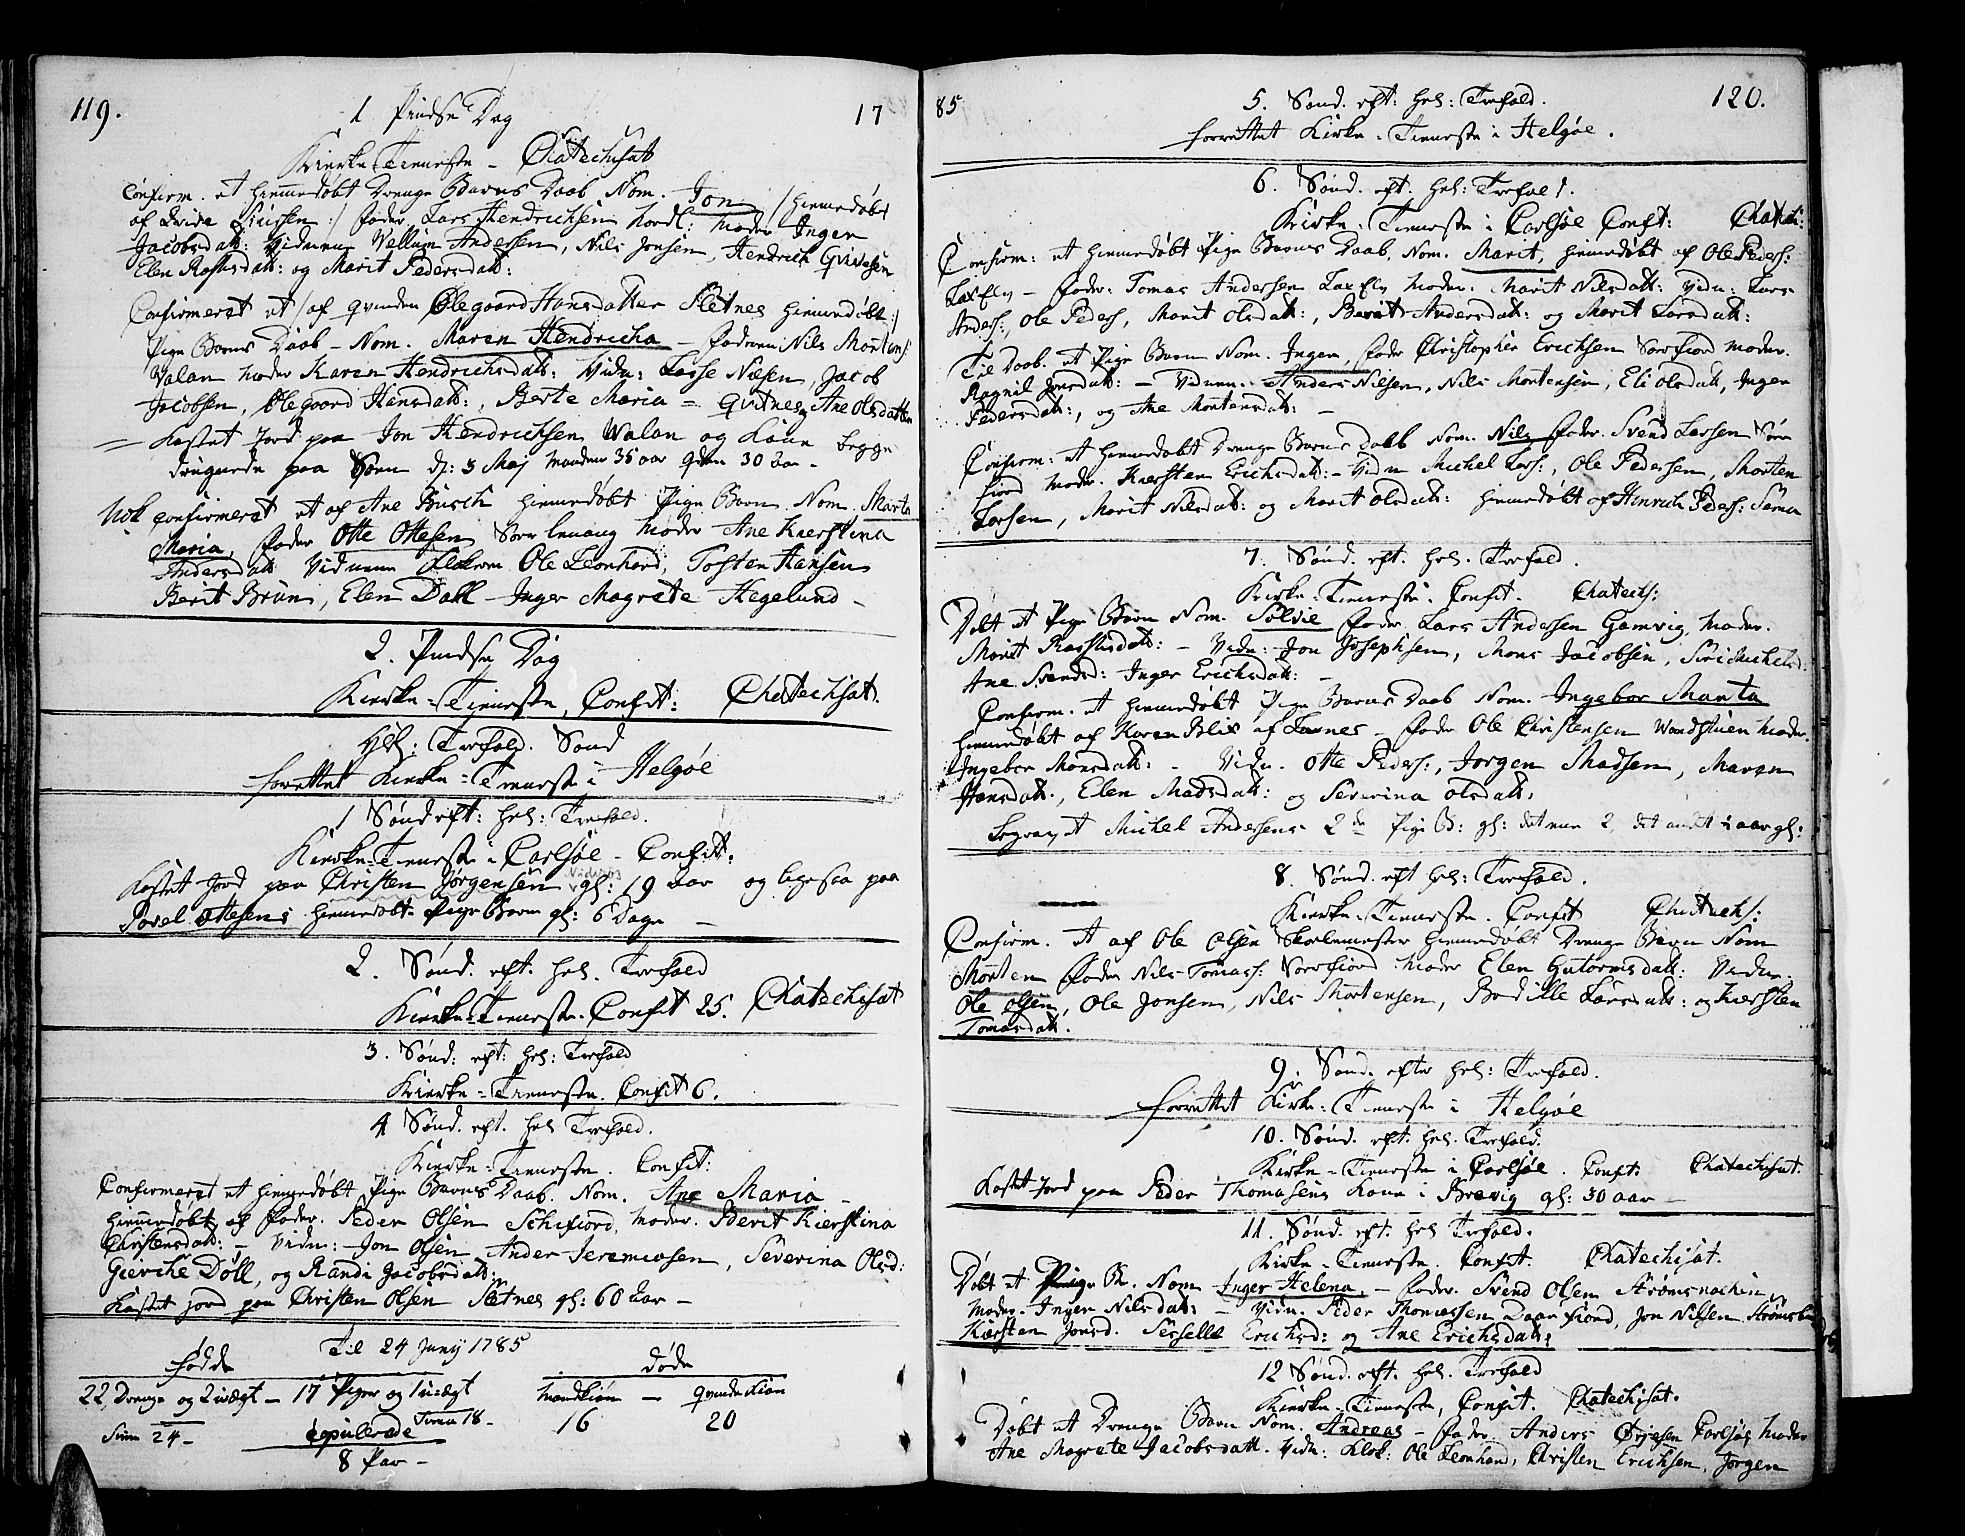 119.
17
1 Pindse Dag
Kirke-Tieneste - Chatechisat
Confirm. et hiemmedøbt Drenge Barns Daab Nom. Jon /: hiemedøbt
af :/ Fader Lars Hendrichsen Nordl: Moder Inger
Jacobsdatt: Vidnerne Vellum Andersen, Nils Jonsen, Hendrich
Elen Rasmsdatt: og Marit Pedersdatt:
Confirmeret et /: af qvinden Ølegaard Hansdatter Sletnes hiemmedøbt :/
Pige Barns Daab - Nom. Maren Hendricha - Faderen Nils Mortens:
Valan Moder Karen Hendrichsdatt: Vidn: Lasse Nilsen, Jacob
Jacobsen, Ølegaard Hansdatt:, Berte Maria - Qvitnes, Ane Olsdatter
- Kastet Jord paa Jon Hendrichsen Walan og Kone begge
druknede paa Søen d: 3 Maj Manden 35 aar qvden 30 aar -
Nok confirmeret et af Ane Busch hiemmedøbt Pige Barn Nom. Marta
Maria, Fader Otte Ottesen Moder Ane Kierstina
Andersdatt Vidnerne Ole Leonhard, Tosten Hansen
Berit Brun, Elen Dall - Inger Magrete Hegelund -
2. Pindse Dag
Kirke-Tieneste, Confit: Chatechisat.
Hel: Trefold. Sønd
forrettet Kirke-Tieneste i Helgøe
1 Sønd eft: hel: Trefold.
Kirke-Tieneste i Carlsøe - Confit:
Kastet Jord paa Christen Jørgensen gl: 19 aar og ligesaa paa
Povel Ottesens hiemmedøbt Pige Barn gl: 6 Dage -
2. Sønd. eft: hel. Trefold
Kirke-Tieneste. Confit 25. Chatechisat
3. Sønd: eft: hel: Trefold
Kirke-Tieneste. Confit 6.
4 Sønd. eft. hel Trefold.
Kirke-Tieneste. Confit:
Confirmeret et hiemmedøbt Pige Barns Daab. Nom. Ane Maria -
hiemmedøbt af Fader. Peder Olsen Schifiord, Moder. Berit Kierstina
Christensdatt: - Vidn: Jon Olsen, Ander Jeremiasen, Severina Olsd:
Giertche Döll, og Randi Jacobsdatt:
Kastet jord paa Christen Olsen Sletnes gl: 60 aar -
Til 24 Juny 1785
Fødde
Døde
22, Drenge og 2 uægt - 17 Piger og 1 uægt Mandkiøn - Qvindekiøn
Sum 24 - Suma 18 - 16 20
Copulerede
8 Par -
85
120.
5. Sønd. eft: hel: Trefold.
forrettet Kirke-Tieneste i Helgøe.
6. Sønd. eft. hel: Trefold.
Kirke-Tieneste i Carlsøe Confit: Chatech:
Confirm: et hiemmedøbt Pige Barns Daab, Nom. Marit, hiemmedøbt af Ole Peders:
LaxElv - Fader: Tomas Andersen LaxElv Moder: Marit Nilsdatt: Vidn: Lars
Anders:, Ole Peders, Marit Olsdatt:, Berit Andersdatt: og Marit Larsdatt:
Til Daab. et Pige Barn Nom. Inger, Fader Christopher Erichsen Sørfiord Moder.
Ragnil Jonsdatt: - Vidnerne. Anders Nilsen, Nils Mortensen, Eli Olsdatt, Inger
Pedersdatt:, og Ane Mortensdatt: -
Confirm: et hiemmedøbt Drenge Barns Daab Nom. Nils Fader. Svend Larsen Sør
fiord Moder. Kiersten Erichsdatt: - Vidn Michel Lars:, Ole Pedersen, Morten
Larsen, Marit Nilsdatt: og Marit Olsdatt: hiemmedøbt af Hinrich Peders: Samа
7. Sønd. eft. hel. Trefold.
Kirke-Tieneste. Confit. Chatechs:
Døbt et Pige Barn Nom. Solvie Fader. Lars Andersen Gamvig, Moder.
Marit Rasmsdatt: - Vidn: Jon Josephsen, Mons Jacobsen, Siri Michelsd:
Ane Svendsd: Inger Erichsdatt: -
Confirm. et hiemmedøbt Pige Barns Daab Nom. Ingebor Marta
hiemmedøbt af Karen Blix af - Fader Ole Christensen Vandstuen Moder.
Ingebor Monsdatt: - Vidn. Otte Peders:, Jorgen Madsen, Maren
Hansdatt., Elen Madsdatt: og Severina Olsdatt.
Begravet Michel Andersens 2de Pige B: gl: det ene 2, det andet 1 aar gl:
8. Sønd. eft hel: Trefold.
Kirke-Tieneste. Confit Chatechs:
Confirm. et af Ole Olsen Skolemester hiemmedøbt Drenge Barn Nom
Morten Fader Nils Tomass: Sørfiord Moder Elen Gutormsdatt: Vidn.
Ole Olsen, Ole Jonsen, Nils Mortensen, Bodille Larsdatt: og Kiersten
Tomasdatt.
9. Sønd. efter hel: Trefold.
forrettet Kirke-Tieneste i Helgøe
10. Sønd. eft. hel. Trefold.
Kirke-Tieneste i Carlsøe. Confit: Chatechisat.
Kastet Jord paa Peder Thomasens Kone i Brevig gl: 30 aar -
11. Sønd. eft. hel Trefold.
Kirke-Tieneste. Confit. Chatechisat.
Døbt et Pige B. Nom Inger Helena, - Fader. Svend Olsen
Moder. Inger Nilsdatt: - Vidn. Peder Thomassen Daarfiord, Jon Nilsen
Kiersten Jonsd. Sesselle Erichsd: og Ane Erichsdatt:
12 Sønd. eft. hel Trefold
Kirke-Tieneste, Confit. Chatechisat.
Døbt et Drenge Barn Nom. Andreas - Fader. Anders Carlsøe, Moder
Ane Magrete Jacobsdatt. Vidn: Klok: Ole Leonhard, Christen Erichsen, Jørgen